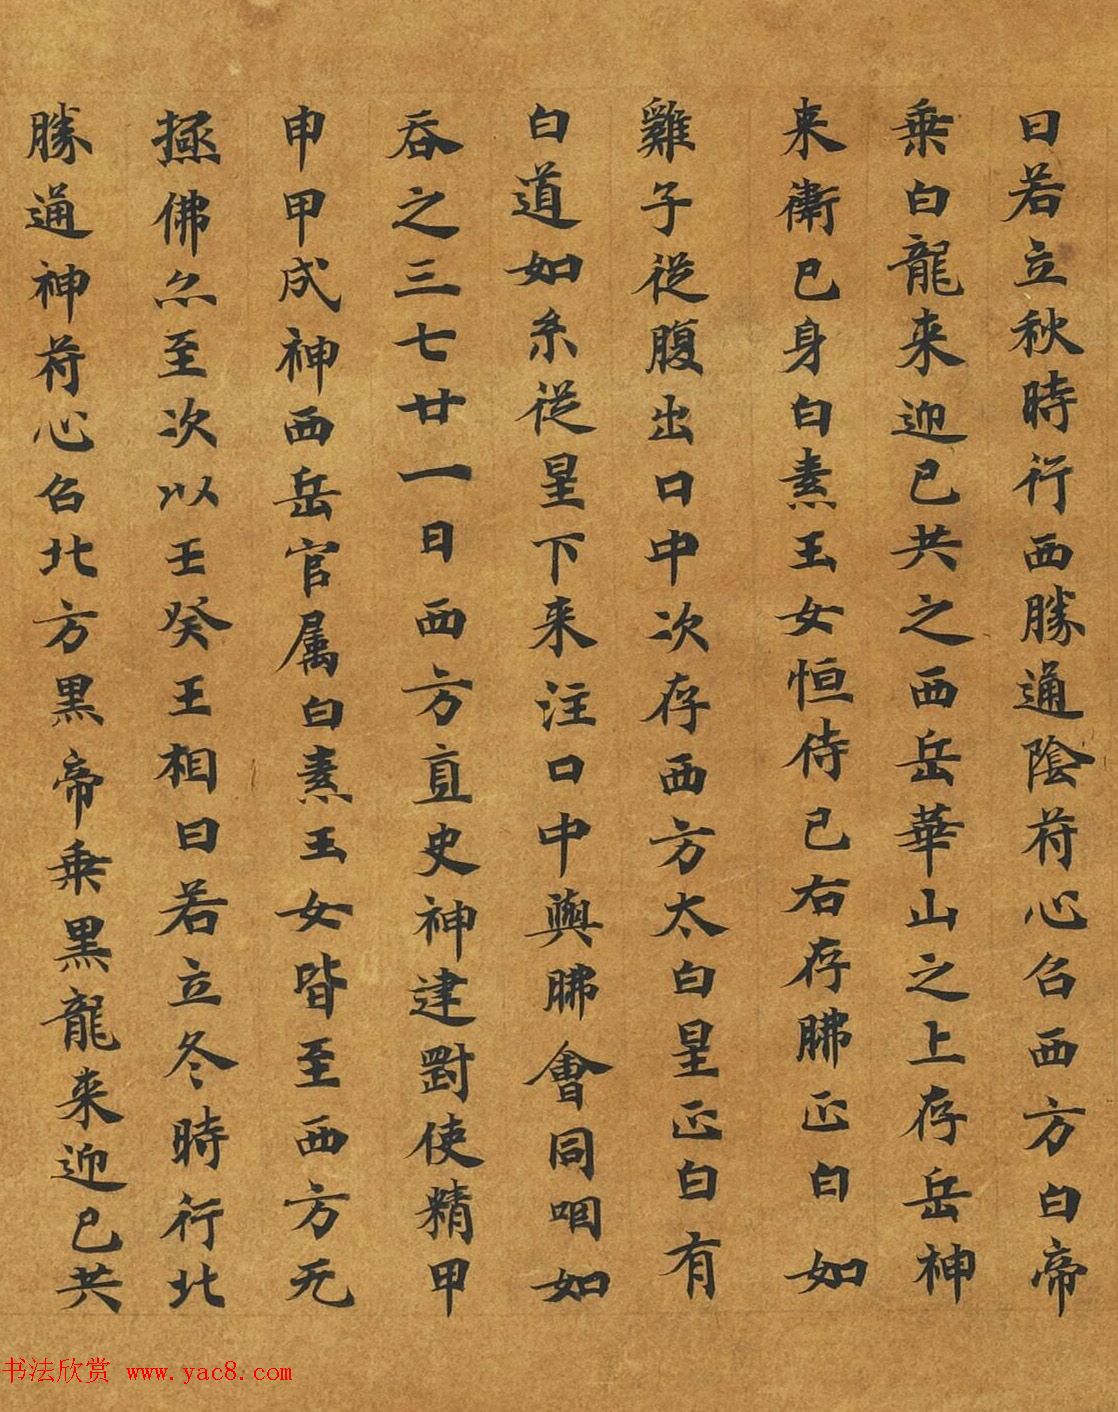 日若立秋時行西勝通陰苻心召西方白帝
乗白龍来迎己共之西岳華山之上存岳神
来衛己身白素玉女恒侍己右存胇正白如
雞子従腹出口中次存西方太白星正白有
白道如糸従星下来注口中與胇會同咽如
吞之三七廿一日西方直史神建對使精甲
申甲成神西岳官属白素玉女皆至西方无
拯佛尒至次以壬癸王相日若立冬時行北
勝通神苻心召北方黒帝乗黒龍来迎己共
书法欣赏 www.yac8.com